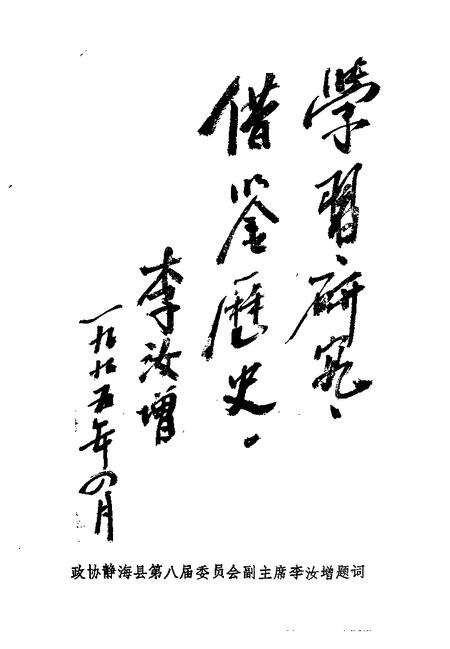 學習、研究、
借鉴歷史．
李汝增
一九九五年四月
政协静海县第八届委员会副主席李汝增题词